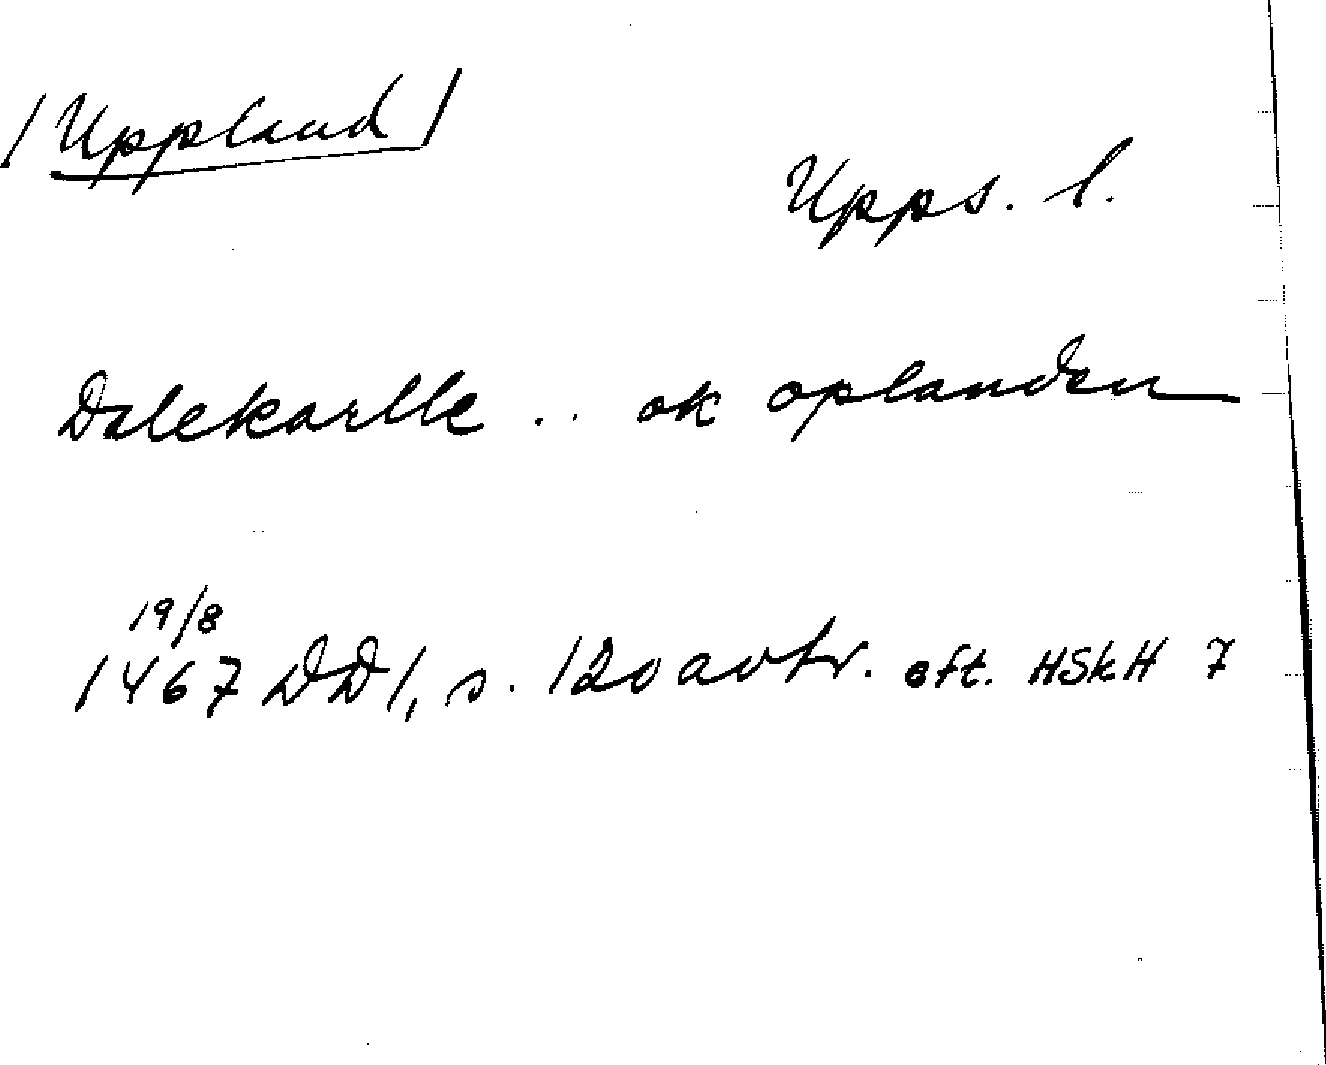 /Uppland/
Upps. l.
Dalekarlle .. ok oplanden
19/8
1467 DD 1, s. 120 avtr. eft. HSkH 7